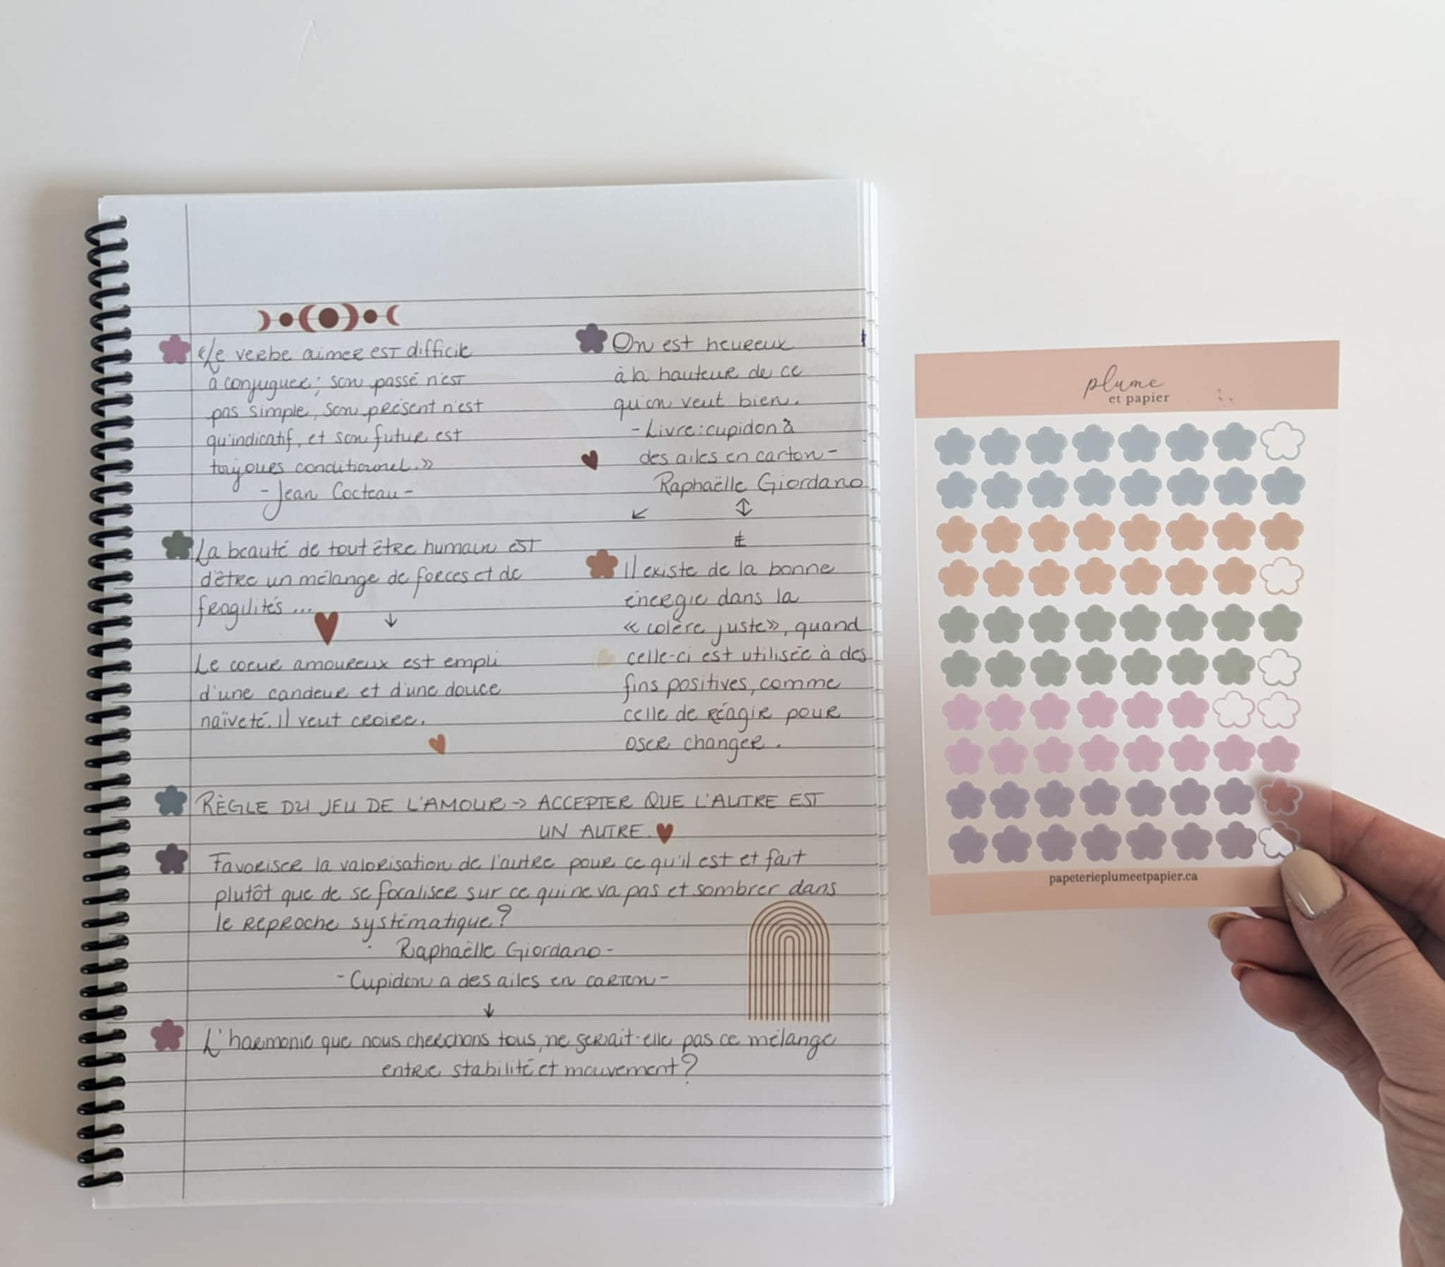 «Le verbe aimer est difficile
à conjuguer; son passé n'est
pas simple, son présent n'est
qu'indicatif, et son futur est
toujours conditionnel.»
-Jean Cocteau-
La beauté de tout être humain est
d'être un mélange de forces et de
fragilités...
↓
Le coeur amoureux est empli
d'une candeur et d'une douce
naïveté. Il veut croire.
On est heureux
à la hauteur de ce
qu'on veut bien.
-Livre: cupidon à
des ailes en carton-
Raphaëlle Giordano
Il existe de la bonne
énergie dans la
«colère juste», quand
celle-ci est utilisée à des
fins positives, comme
celle de réagir pour
oser changer.
RÈGLE DU JEU DE L'AMOUR → ACCEPTER QUE L'AUTRE EST
UN AUTRE.
Favoriser la valorisation de l'autre pour ce qu'il est et fait
plutôt que de se focaliser sur ce qui ne va pas et sombrer dans
le reproche systématique?
Raphaëlle Giordano-
-Cupidon a des ailes en carton-
↓
L'harmonie que nous cherchons tous, ne serait-elle pas ce mélange
entre stabilité et mouvement?
plume
et papier
papeterieplumeetpapier.ca